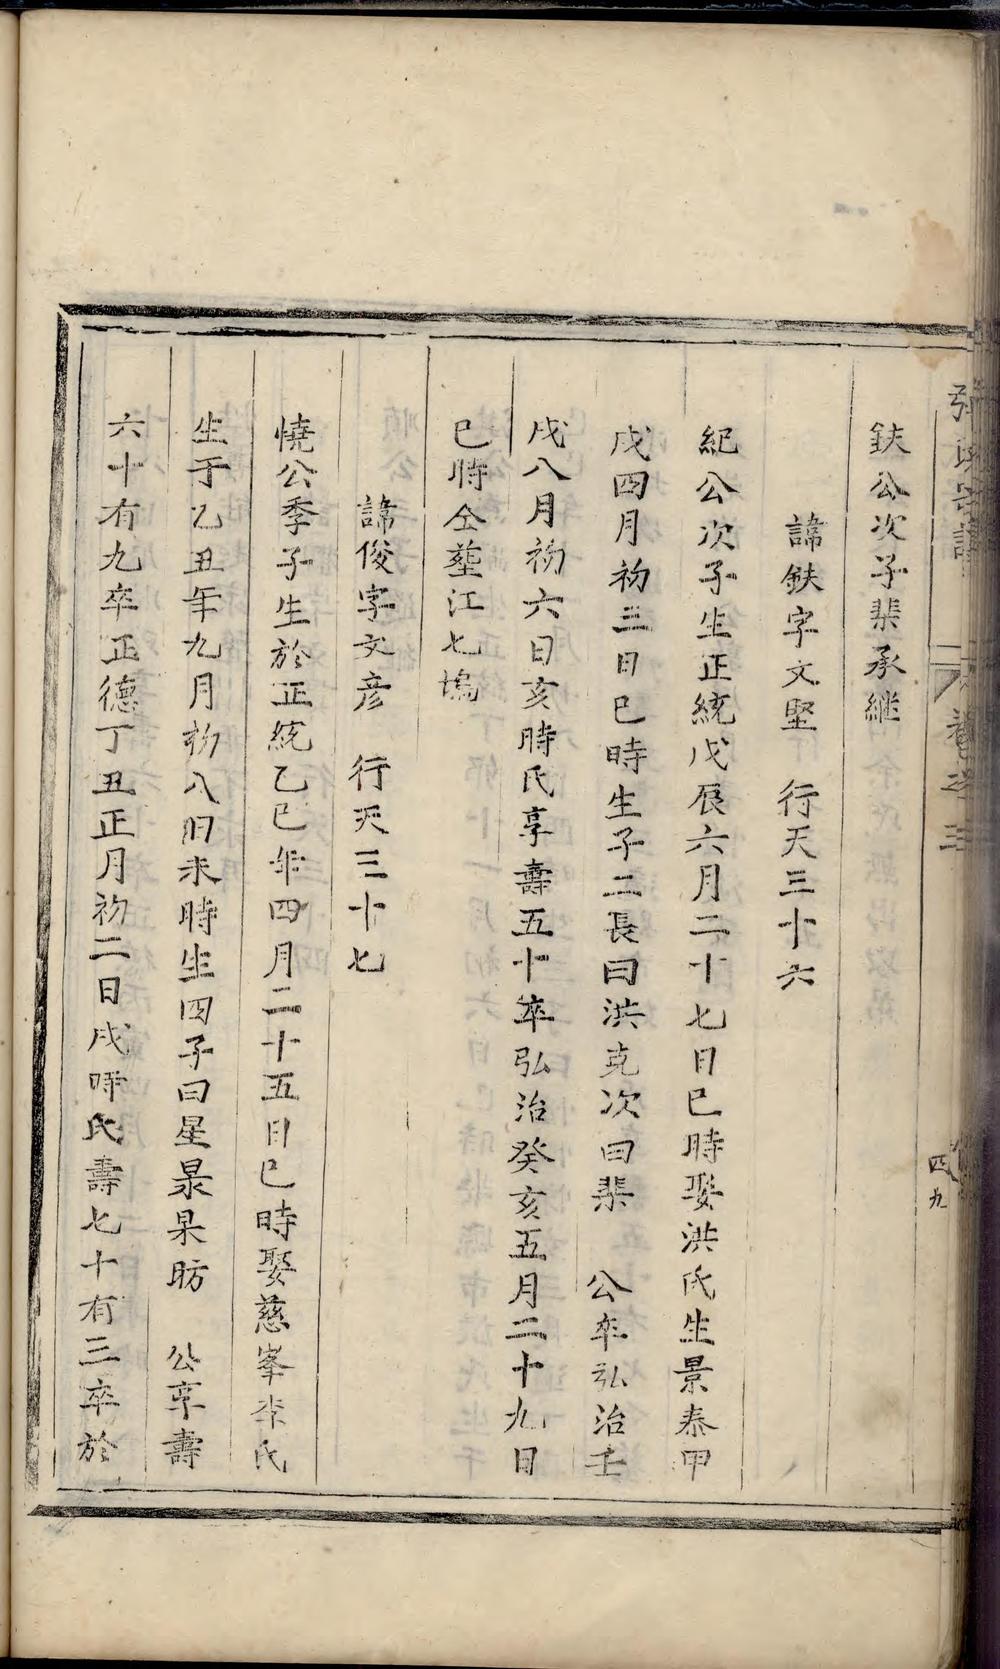 鈇公次子棐承継
諱鈇字文堅　行天三十六
紀公次子生正統戊辰六月二十七日巳時娶洪氏生景泰甲
戌四月初三日巳時生子二長曰洪克次曰棐　公卒弘治壬
戌八月初六日亥時氏享壽五十卒弘治癸亥五月二十九日
巳時仝塟江七塢
諱俊字文彦　行天三十七
憢公季子生於正統乙巳年四月二十五日巳時娶慈峯李氏
生于乙丑年九月初八日未時生四子曰星杲昉　公享壽
六十有九卒正德丁丑正月初二日戌時氏壽七十有三卒於
卷之三
四九